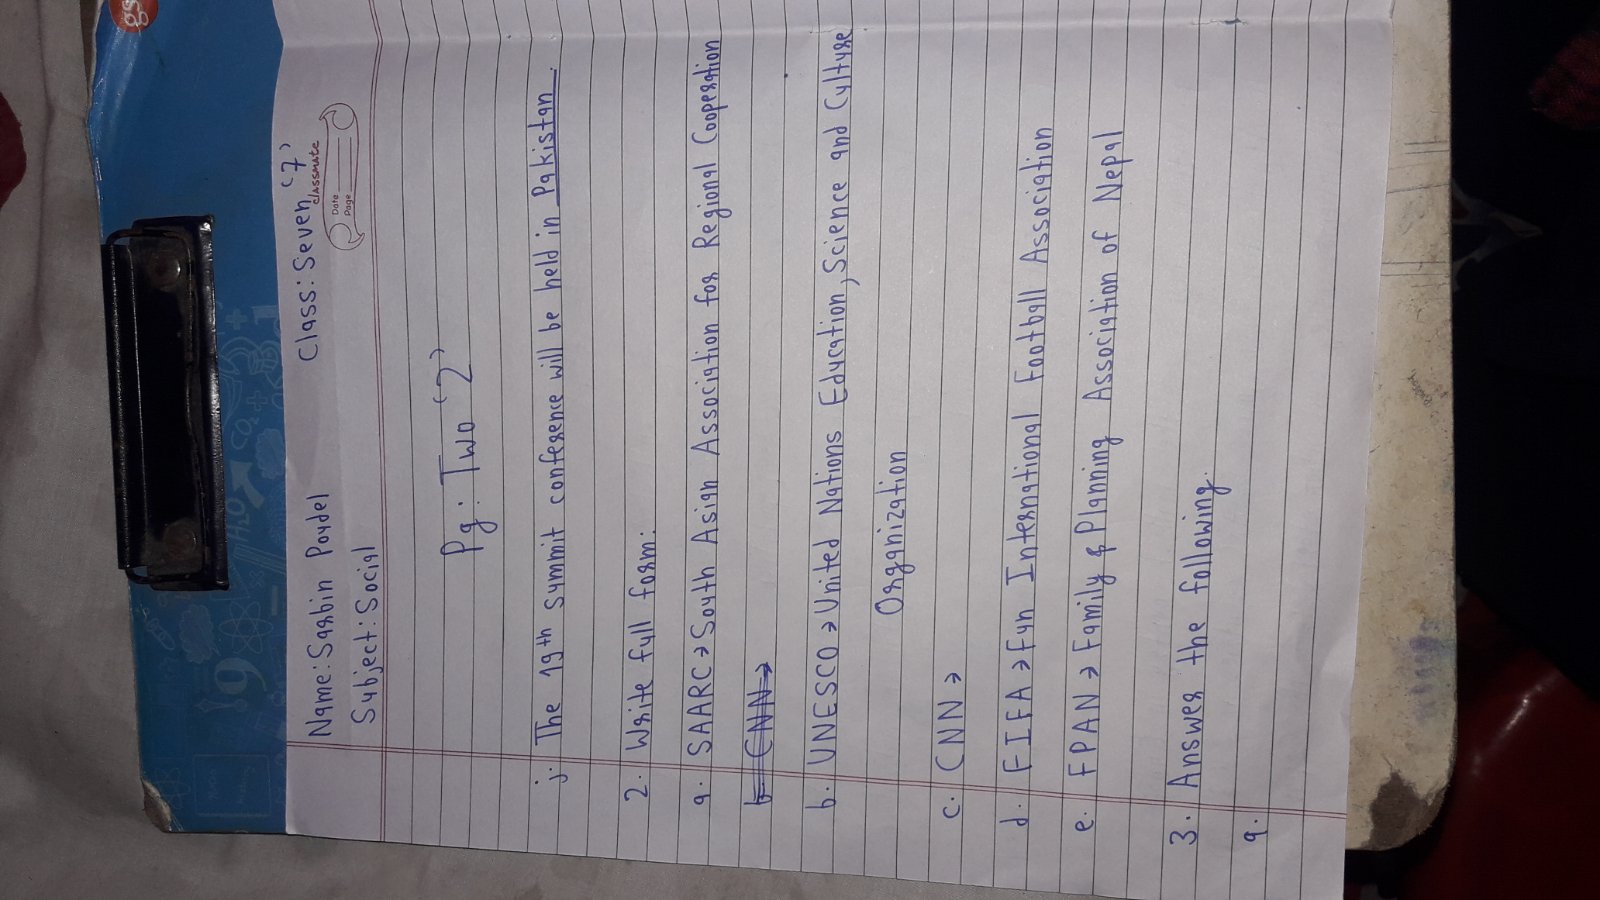 Name: Sarbin Poudel Class: Seven '7'
Subject: Social
classmate
Date
Page
Pg: Two '2'
j. The 19th summit conference will be held in Pakistan.
2. Write full form:
a. SAARC → South Asian Association for Regional Cooperation
b. CNN →
b. UNESCO → United Nations Education, Science and Culture
Organization
c. CNN →
d. FIFA → Fun International Football Association
e. FPAN → Family & Planning Association of Nepal
3. Answer the following.
a.
H2O
CO2